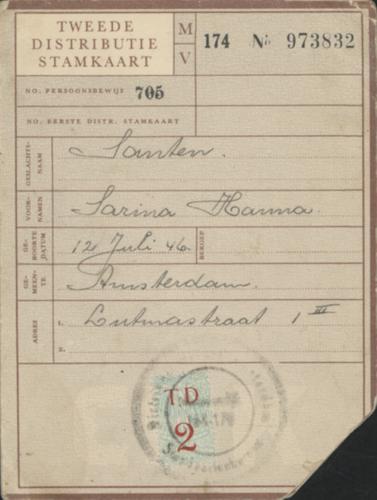 TWEEDE
DISTRIBUTIE
STAMKAART
M
V
174 No 973832
NO. PERSOONSBEWIJS 705
NO. EERSTE DISTR. STAMKAART
GESLACHTS-
NAAM
Santen.
VOOR-
NAMEN
Sarina Hanna.
GE-
BOORTE
DATUM
12 Juli 46.
BEROEP
GE-
MEEN-
TE
Amsterdam.
ADRES
1. Lutmastraat 1 III
2.
T.D
2